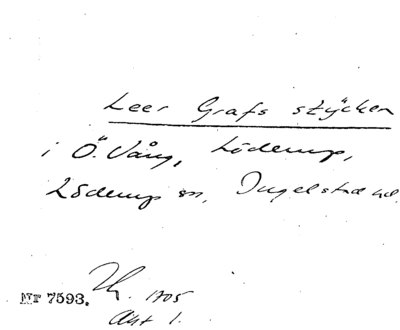 Leer Grafs stycken
i Ö. Vång, Löderup,
Löderup sn, Ingelstad hd.
Nr 7593. 1705
Akt 1.